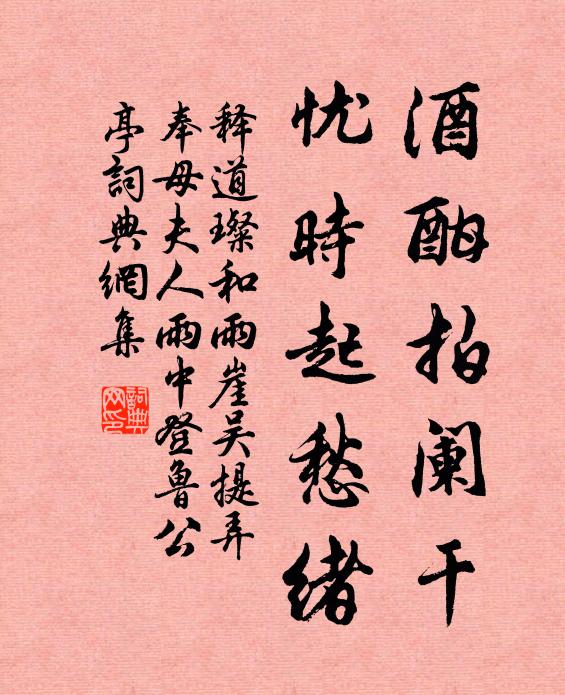 酒酣拍阑干
忧時起愁緒
释道璨和雨崖吴提弄
奉母夫人雨中登鲁公
亭詞典網集
詞典网印